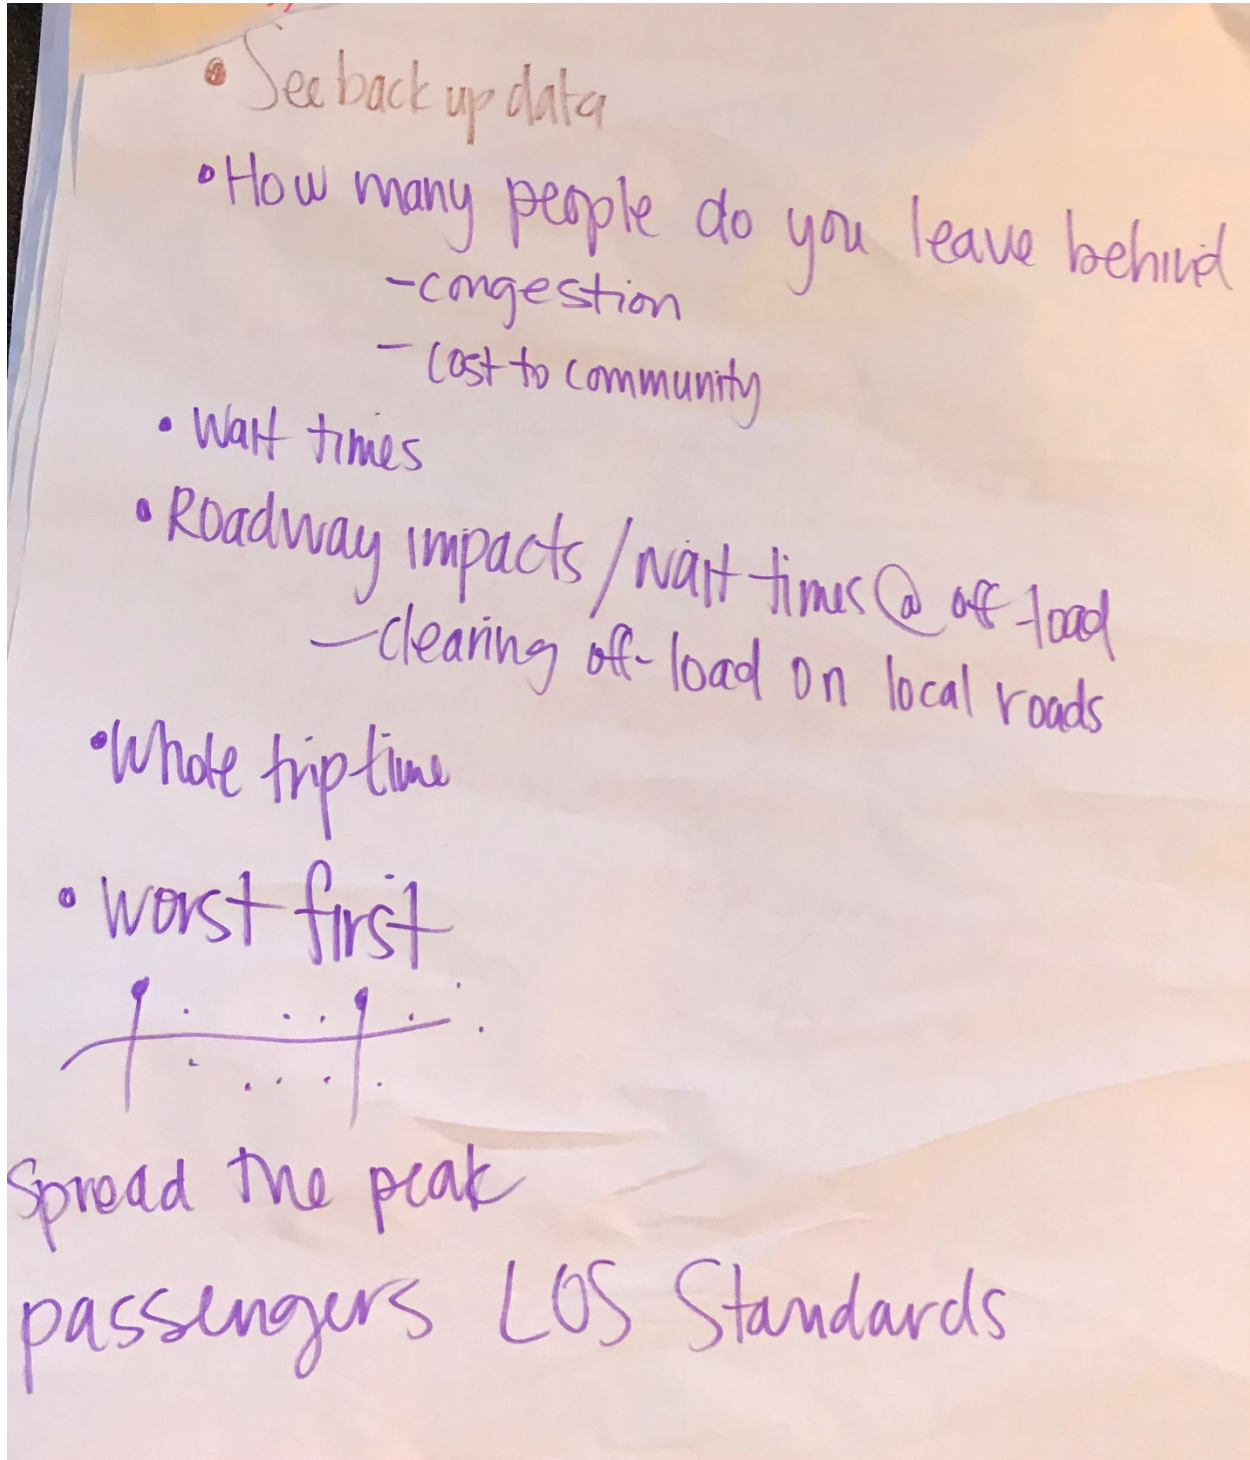 • See back up data
• How many people do you leave behind
- congestion
- cost to community
• Wait times
• Roadway impacts / wait times @ off-load
- clearing off-load on local roads
• Whole trip time
• worst first
Spread the peak
passengers LOS Standards